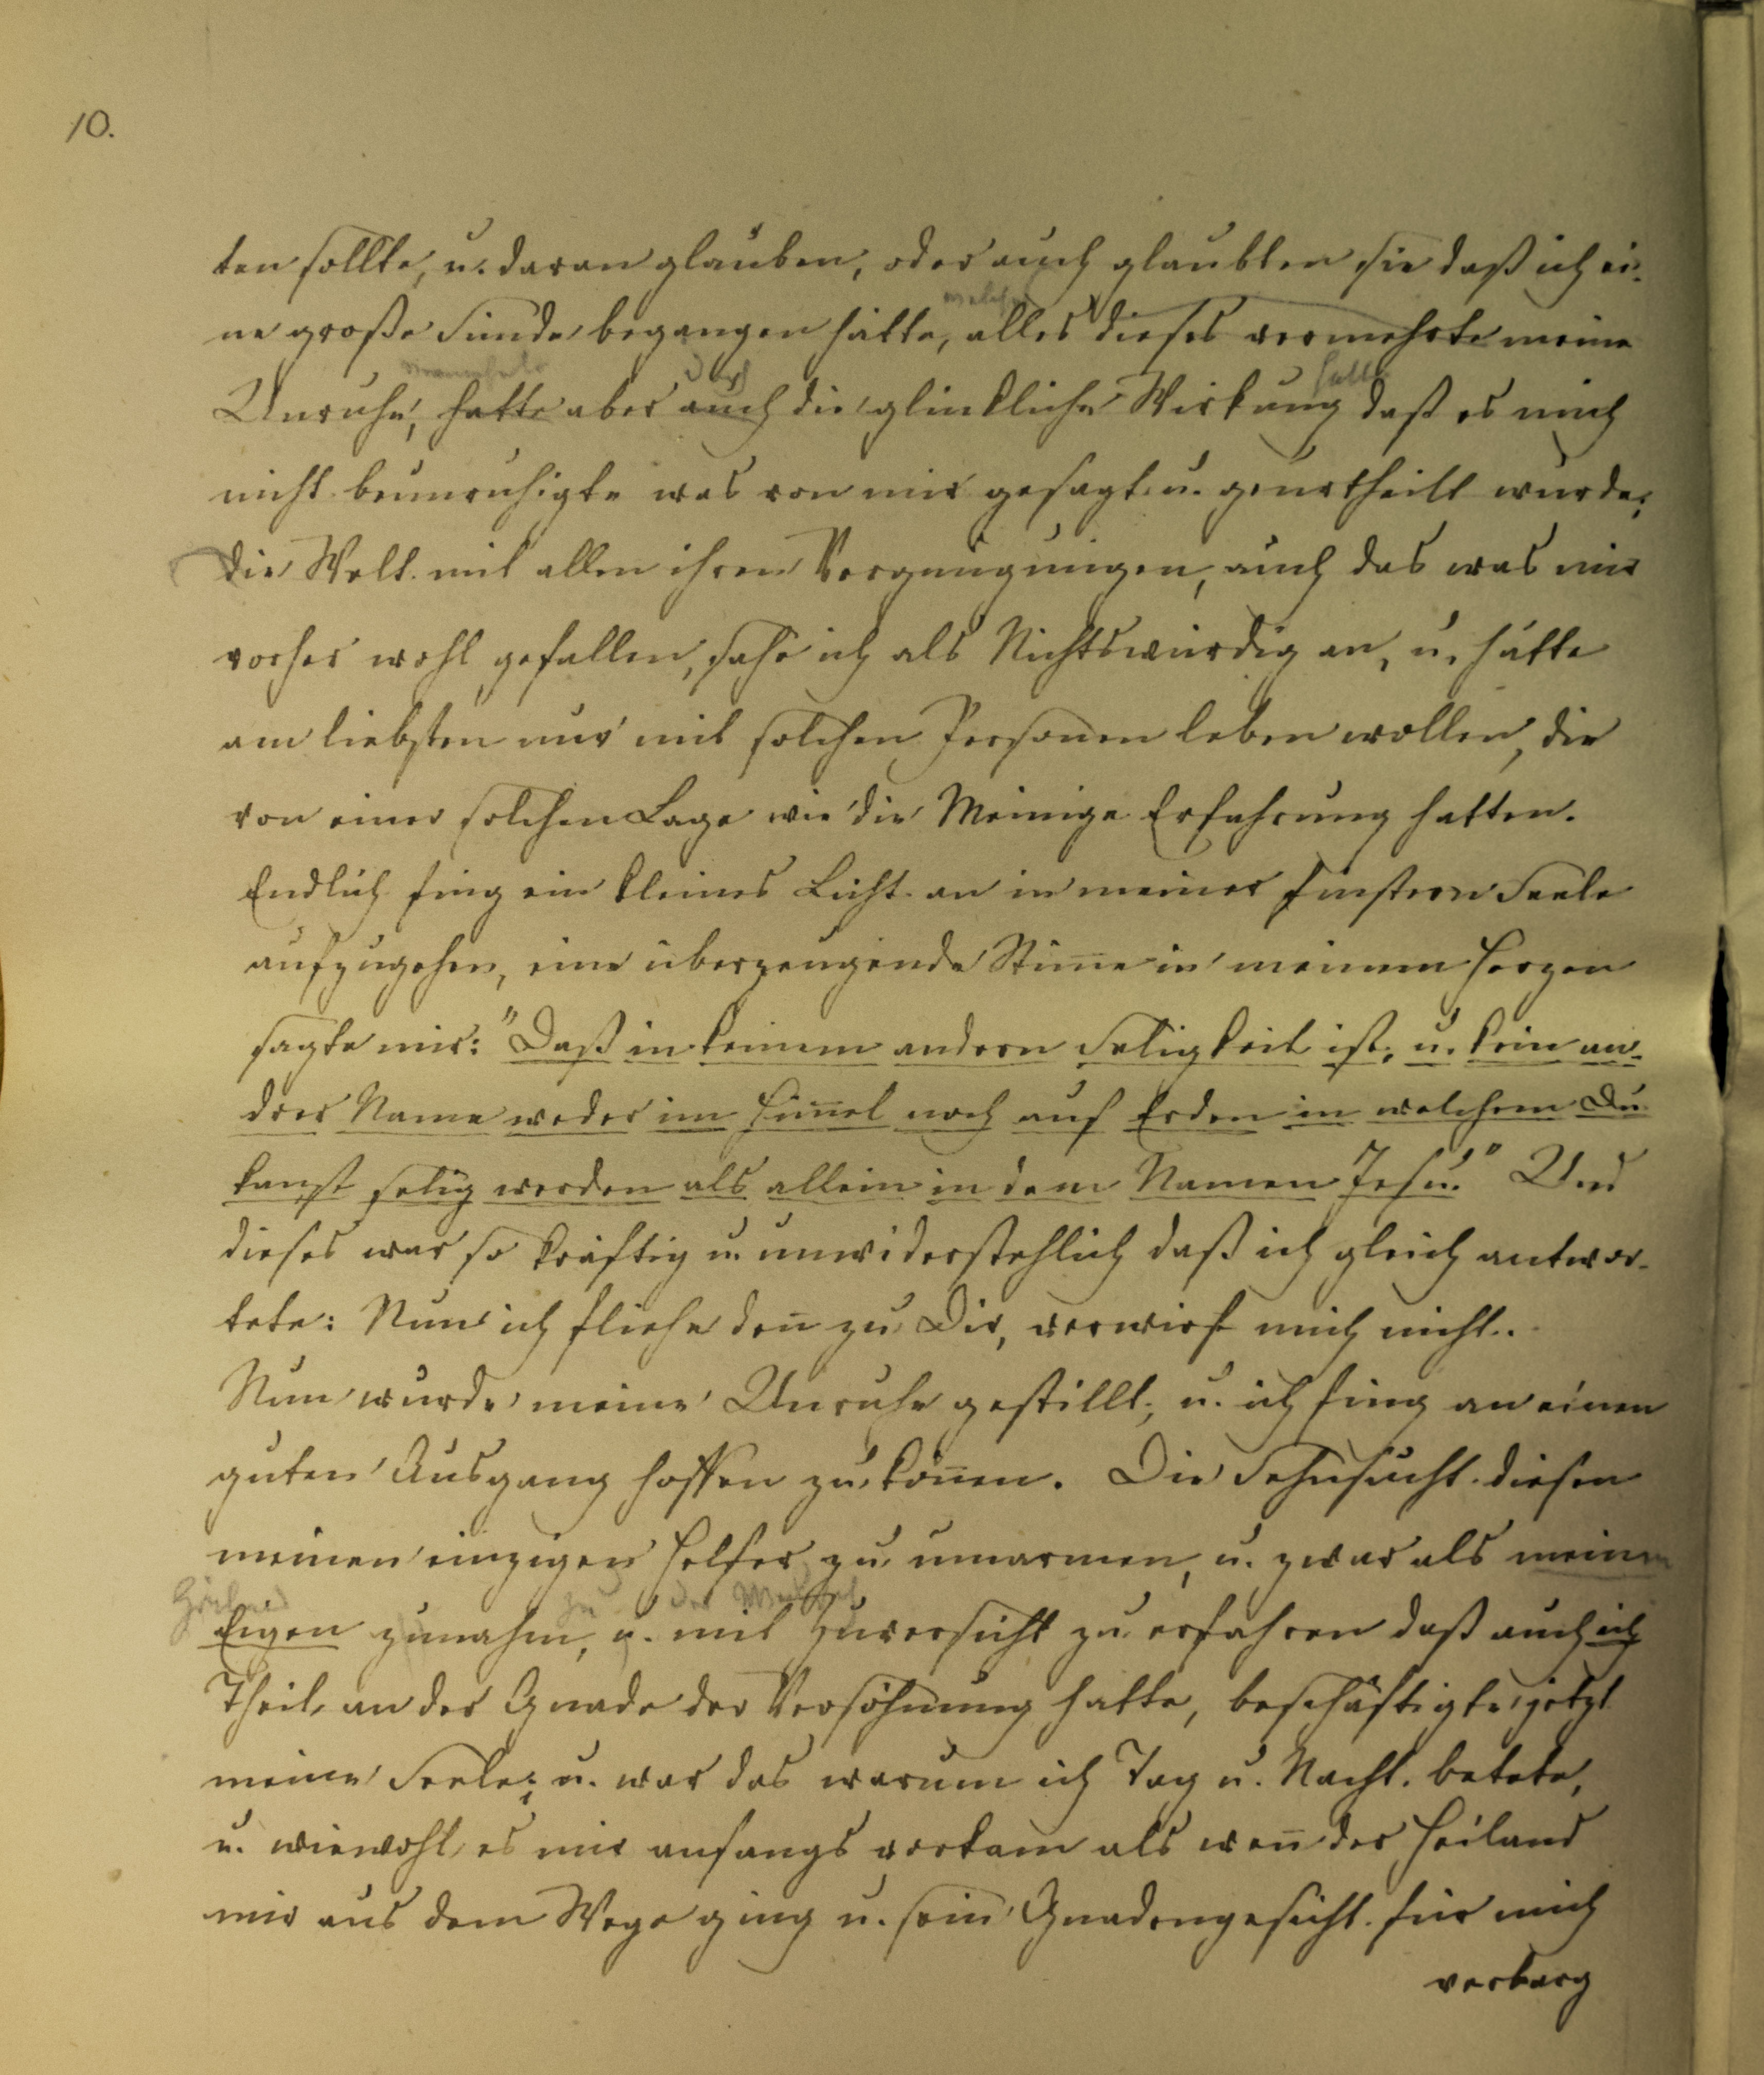 10.
ten sollte, u. daran glauben, oder auch glaubten sie daß ich ei-
welches
ne große Sünde begangen hätte, alles dieses vermehrte meine
doch hatte
Unruhe, hatte aber auch die glückliche Wirkung daß es mich
nicht beunruhigte was von mir gesagt u. geurtheilt wurde;
Die Welt mit allen ihren Vergnügungen, auch das was mir
vorher wohl gefallen, sahe ich als Nichtswürdig an, u. hätte
am liebsten nur mit solchen Personen leben wollen, die
von einer solchen Lage wie die Meinige Erfahrung hatten.
Endlich fing ein kleines Licht an in meiner finstern Seele
aufzugehen, eine überzeugende Stim̄e in meinem Herzen
sagte mir: "Daß in keinem andern Seligkeit ist, u. kein an-
drer Name weder im Him̄el noch auf Erden in welchem Du
kanst selig werden als allein in dem Namen Jesu." Und
dieses war so kräftig u. unwiderstehlich daß ich gleich antwor-
tete: Nun ich fliehe den̄ zu Dir, verwirf mich nicht.
Nun wurde meine Unruhe gestillt, u. ich fing an einen
guten Ausgang hoffen zu kön̄en. Die Sehnsucht diesen
meinen einzigen Helfer zu umarmen, u. zwar als meinen
zu der Wunsch
Eigen zunahm, u. mit Zuversicht zu erfahren daß auch ich
Theil an der Gnade der Versöhnung hatte, beschäftigte jetzt
meine Seele; u. war das warum ich Tag u. Nacht betete,
u. wiewohl es mir anfangs vorkam als wen̄ der Heiland
mir aus dem Wege ging u. sein Gnadengesicht für mich
verbarg